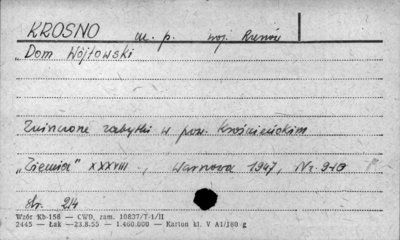 KROSNO m. p. woj. Rzeszów
"Dom Wójtowski
Zniszczone zabytki w pow. Krośnieńskim
"Ziemia" XXXVIII , Warszawa 1947, Nr. 9-10
str. 214
Wzór Kb-156 — CWD, zam. 10837/T-1/II
2445 — Łak —23.8.55 — 1.460.000 — Karton kl. V A1/180 g